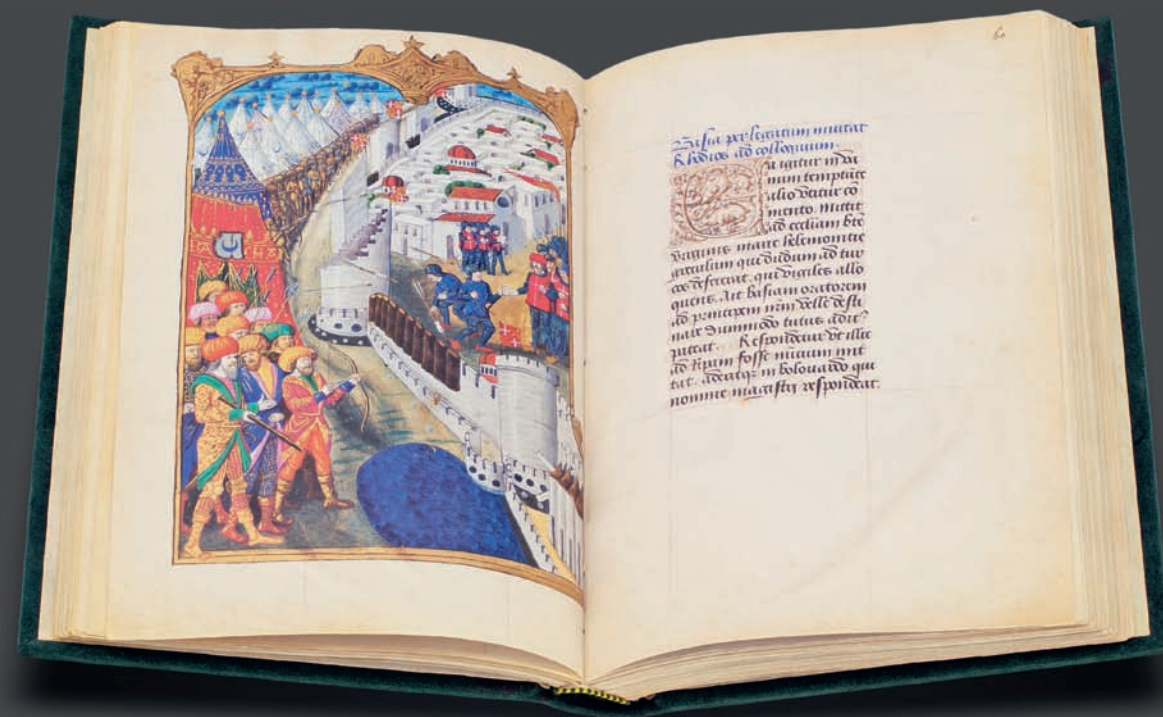 60
Basia per legatum invitat
Rhodios ad colloquium.
Ea igitur in va
num temptate
alio vertitur co
mento. mittit
ad eccliam bte
virginis marie helemonitre
greculum qui dudum ad tur
cos defecerat. qui vigiles allo
quens. Ait basiam oratorem
ad principem nrm velle desti
nare dummodo tutus adire
puteat. Respondetur ut ille
ad ripam fosse nucium mit
tat. aderitqz in bolovardo qui
nomine magistri respondeat.